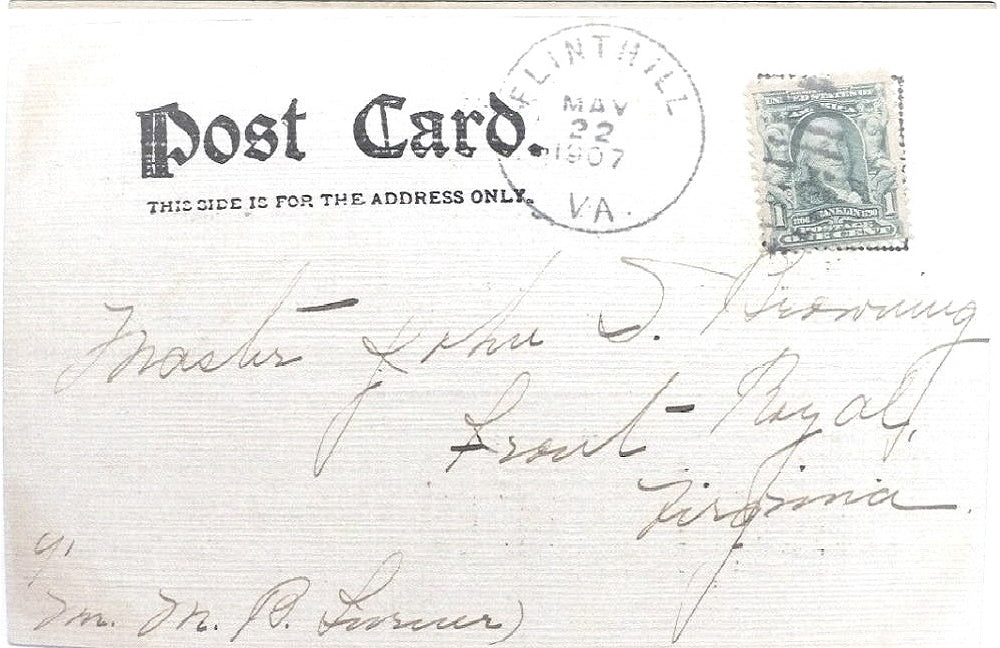 Post Card.
THIS SIDE IS FOR THE ADDRESS ONLY.
FLINTHILL
MAY
22
1907
VA.
UNITED STATES OF
AMERICA
1 1
FRANKLIN
POSTAGE
ONE CENT
Master John S. Browning
Front Royal,
Virginia.
M. B. Turner)